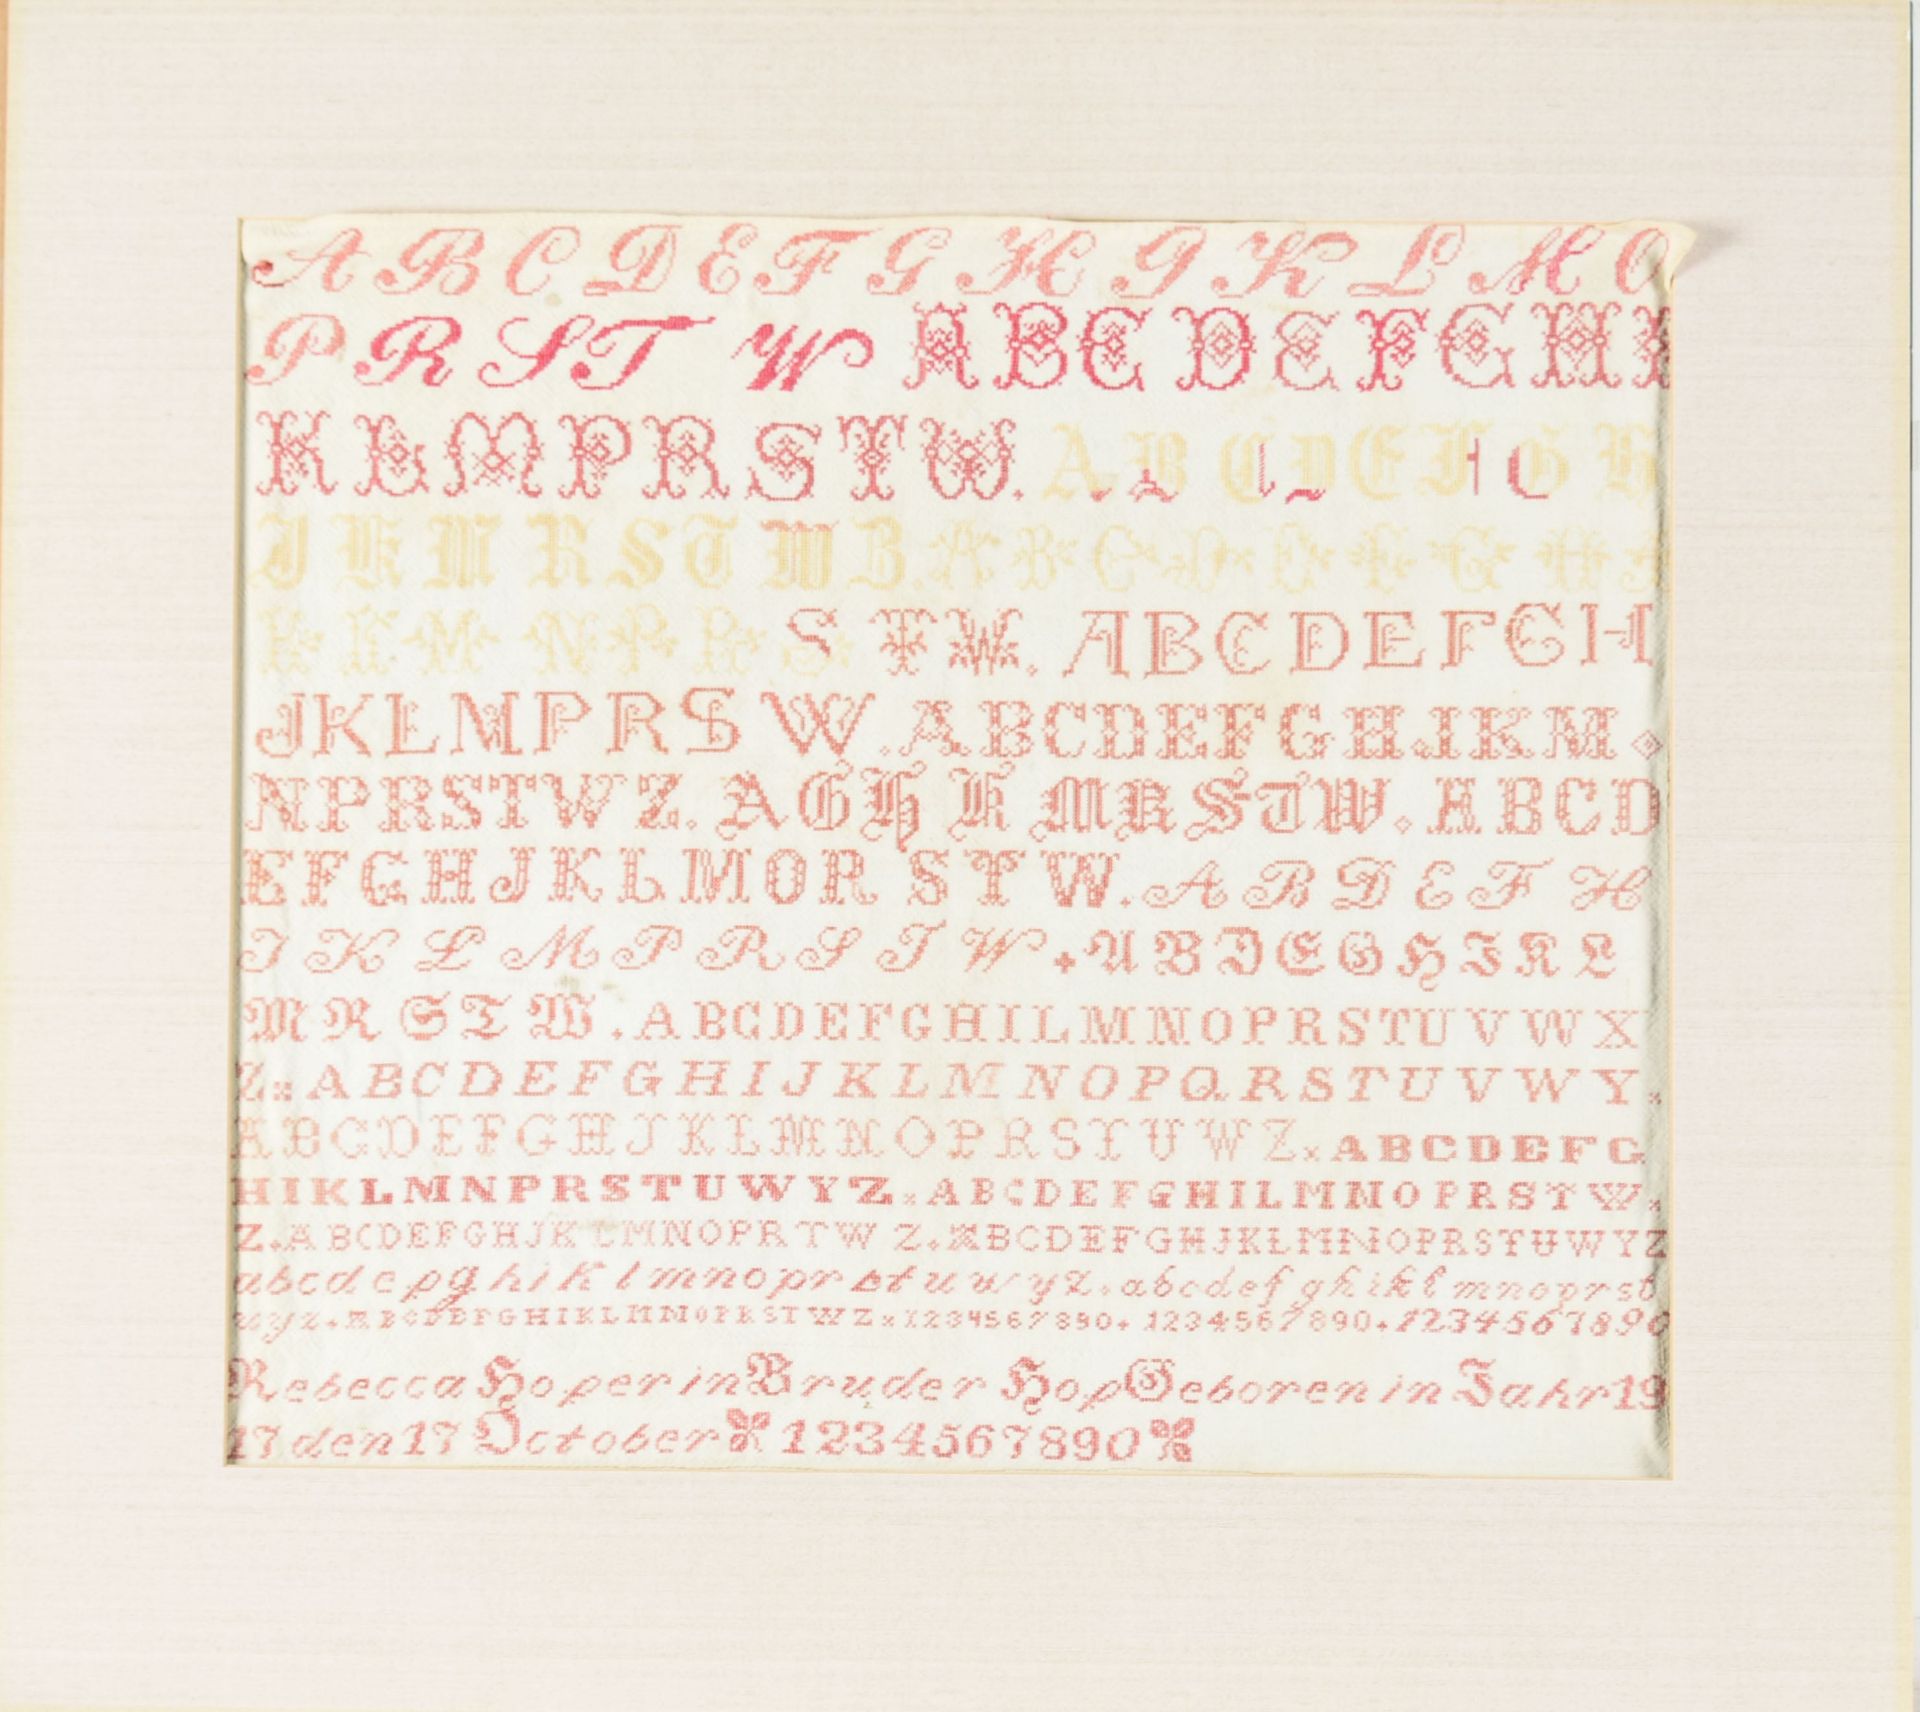 A B C D E F G H I K L M O
P R S T W A B C D E F G H I
K L M P R S T W. A B C D E F G H
I K M R S T W B. A B C D E F G H J
K M N P R S T W. A B C D E F G H
J K L M P R S W. A B C D E F G H J K M
N P R S T W Z. A G H K M R S T W. A B C D
E F G H J K L M O R S T W. A B D E F H
I K L M P R S T W + A B D E G H I K L
M R S T W. A B C D E F G H I L M N O P R S T U V W X
Z. A B C D E F G H I J K L M N O P Q R S T U V W Y.
A B C D E F G H J K L M N O P R S T U W Z x A B C D E F G
H I K L M N P R S T U W Y Z x A B C D E F G H I L M N O P R S T W x
Z. A B C D E F G H J K L M N O P R T W Z. A B C D E F G H J K L M N O P R S T U W Y Z
a b c d e p g h i k l m n o p r s t u w y z. a b c d e f g h i k l m n o p r s t
u y z. A B C D E F G H I K L M N O P R S T W Z x 1 2 3 4 5 6 7 8 9 0 + 1 2 3 4 5 6 7 8 9 0. 1 2 3 4 5 6 7 8 9 0
Rebecca Hoper in Bruder Hop Geboren in Jahr 19
17 den 17 October 1234567890